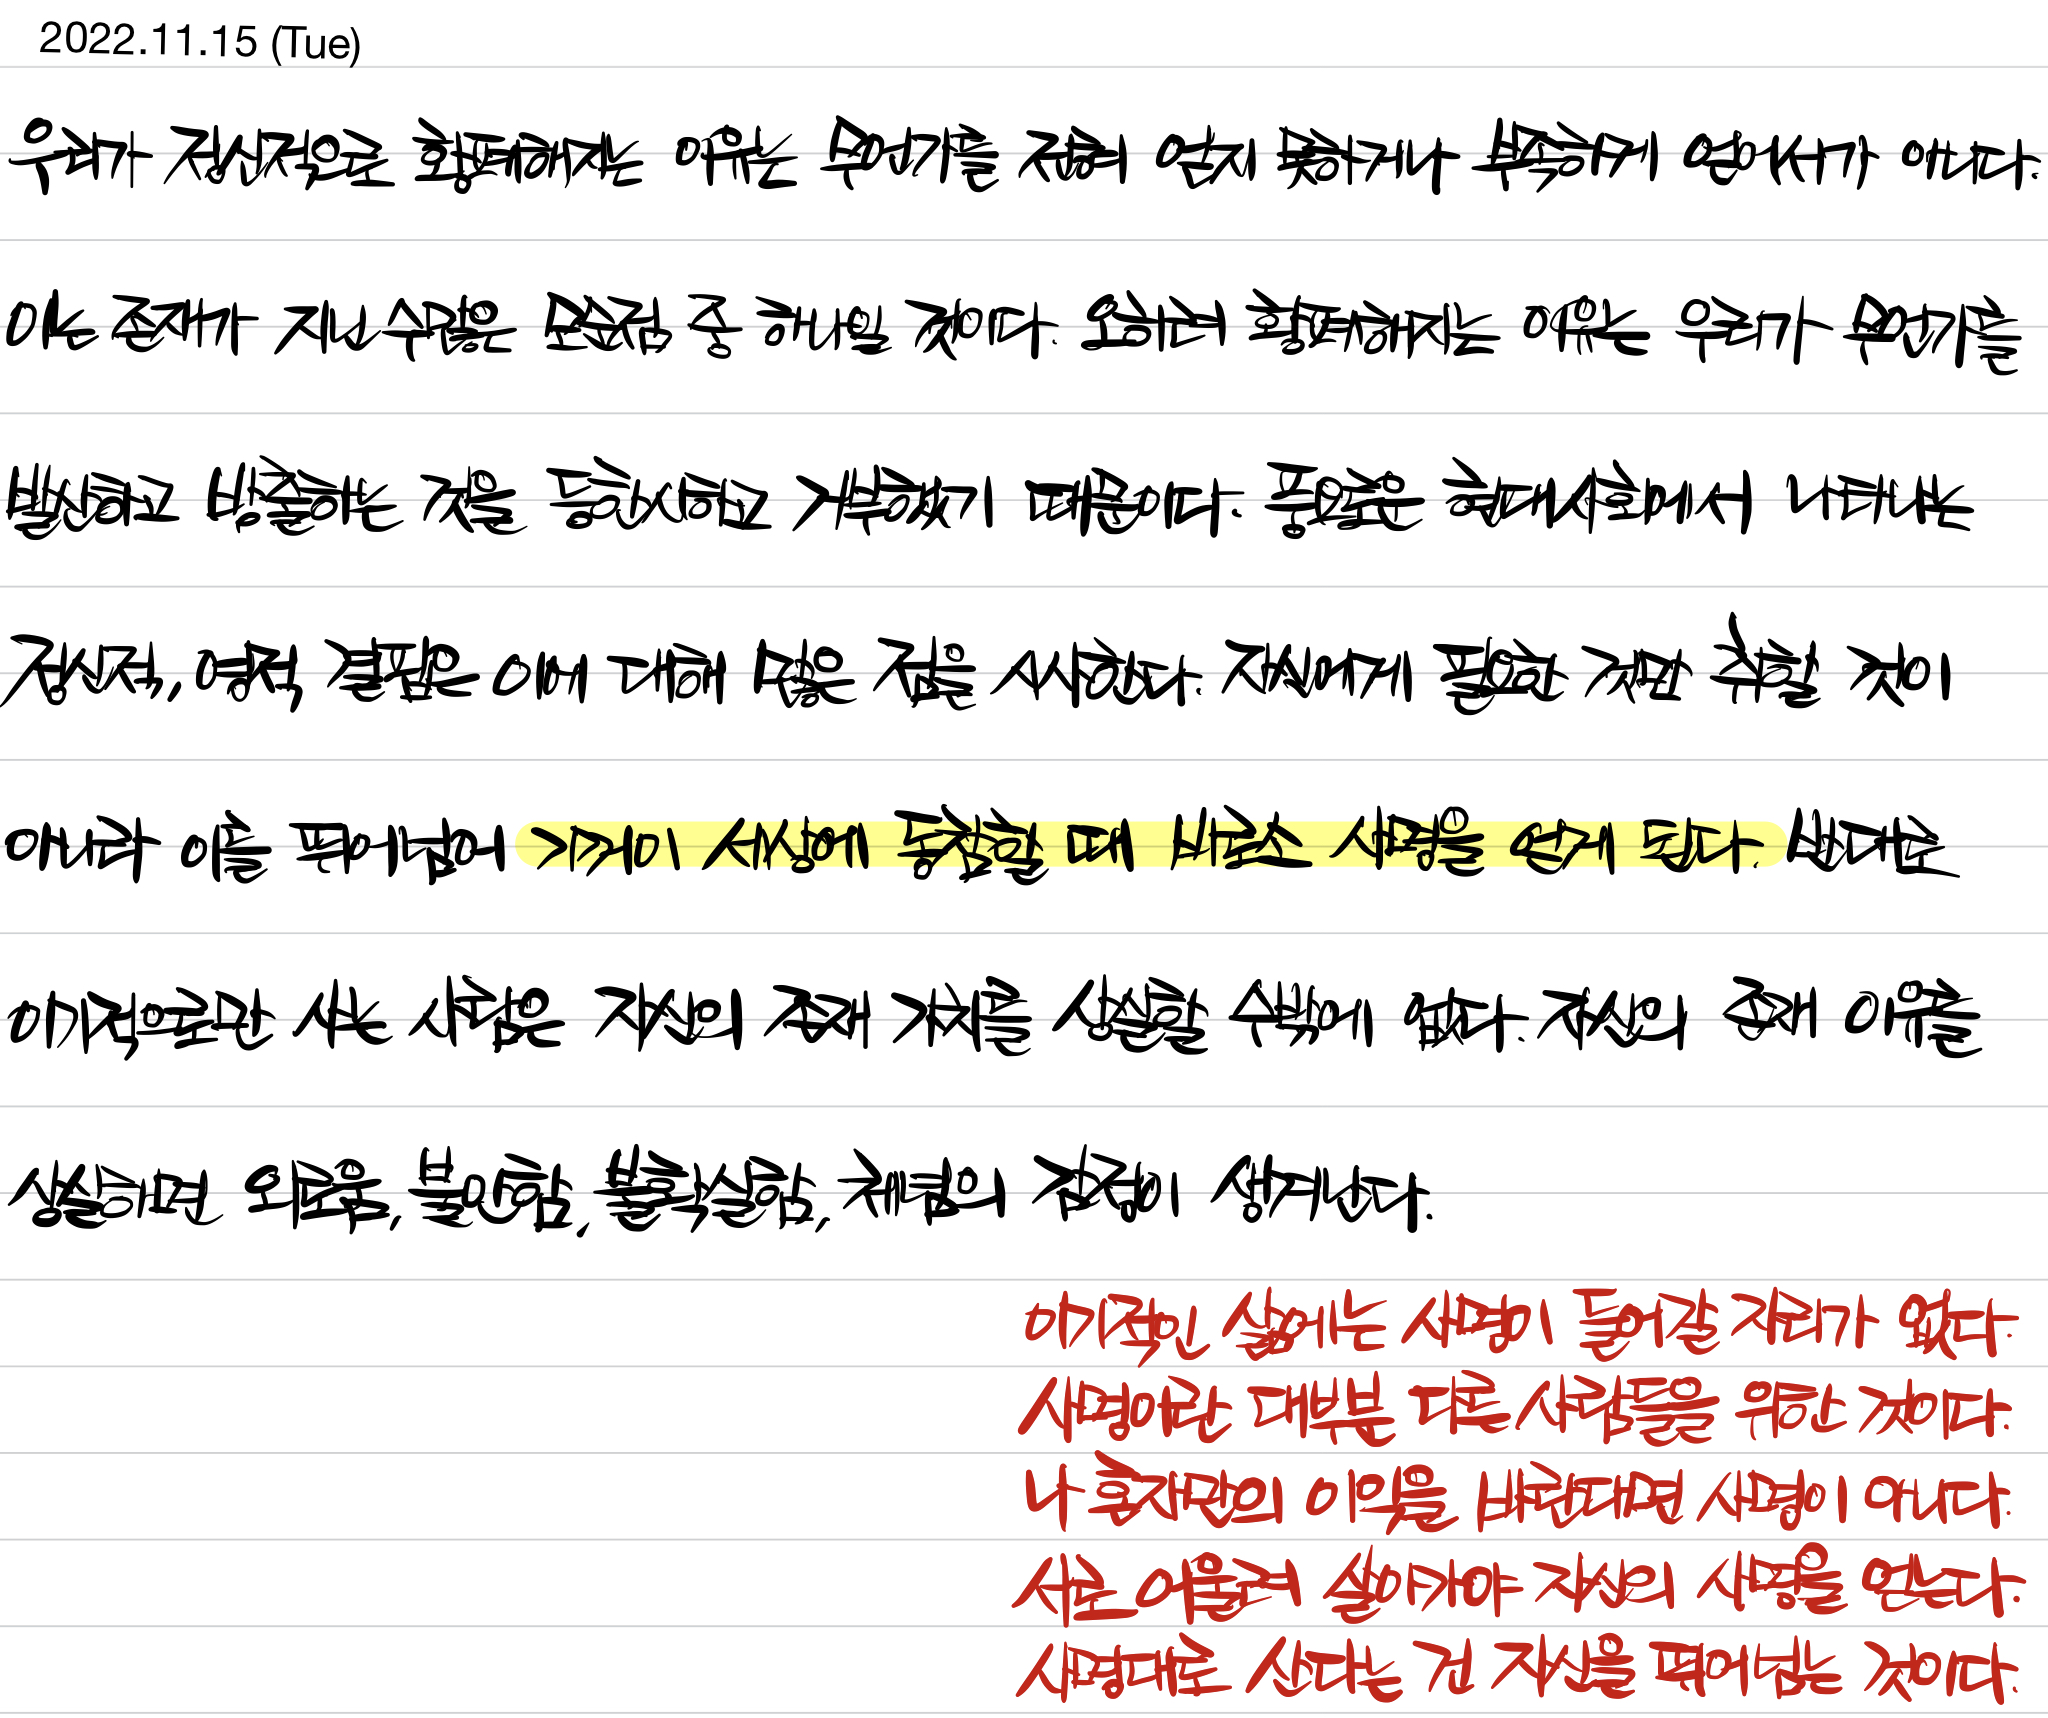 2022.11.15 (Tue)
우리가 정신적으로 황폐해지는 이유는 무언가를 전혀 얻지 못하거나 부족하게 얻어서가 아니다.
이는 존재가 지닌 수많은 모순점 중 하나일 것이다. 오히려 황폐해지는 이유는 우리가 무언가를
발산하고 방출하는 것을 등한시하고 거부했기 때문이다. 풍요로운 현대사회에서 나타나는
정신적, 영적 결핍은 이에 대해 많은 점을 시사한다. 자신에게 필요한 것만 취할 것이
아니라 이를 뛰어넘어 기꺼이 세상에 동참할 때 비로소 사명을 얻게 된다. 반대로
이기적으로만 사는 사람은 자신의 존재 가치를 상실할 수밖에 없다. 자신의 존재 이유를
상실하면 외로움, 불안함, 불확실함, 체념의 감정이 생겨난다.
이기적인 삶에는 사명이 들어갈 자리가 없다.
사명이란 대부분 다른 사람들을 위한 것이다.
나 혼자만의 이익을 바란다면 사명이 아니다.
서로 어울려 살아가야 자신의 사명을 얻는다.
사명대로 산다는 건 자신을 뛰어넘는 것이다.